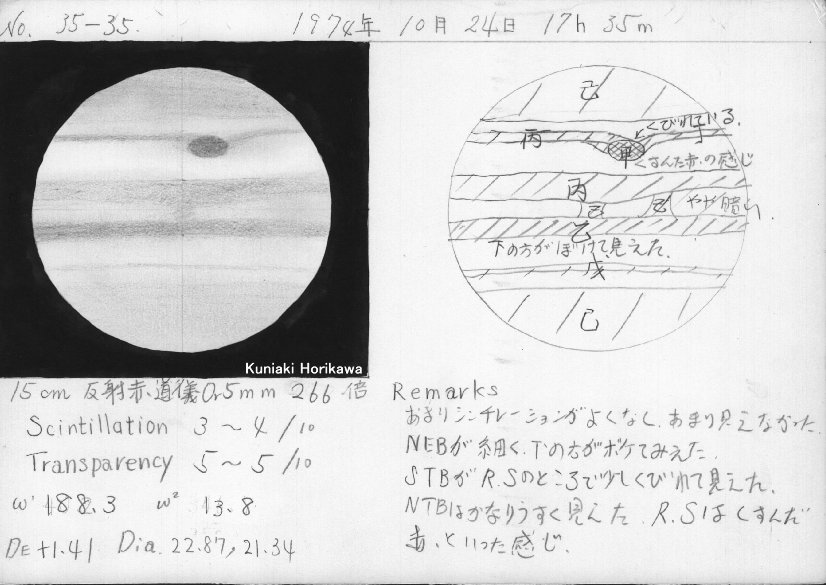 No. 35-35. 1974年 10月 24日 17h 35m
己
くびれている.
丙
甲
くすんだ赤の感じ
丙
己
己
やや暗い
乙
下の方がぼけて見えた.
戊
己
Kuniaki Horikawa
15cm 反射赤道儀 Or5mm 266倍
Scintillation 3～4/10
Transparency 5～5/10
ω¹ 188.3 ω² 13.8
DE +1.41 Dia. 22.87, 21.34
Remarks
あまりシンチレーションがよくなし、あまり見えなかった.
NEBが細く、下の方がボケてみえた.
STBがR.Sのところで少しくびれて見えた.
NTBはかなりうすく見えた. R.Sはくすんだ
赤、といった感じ.